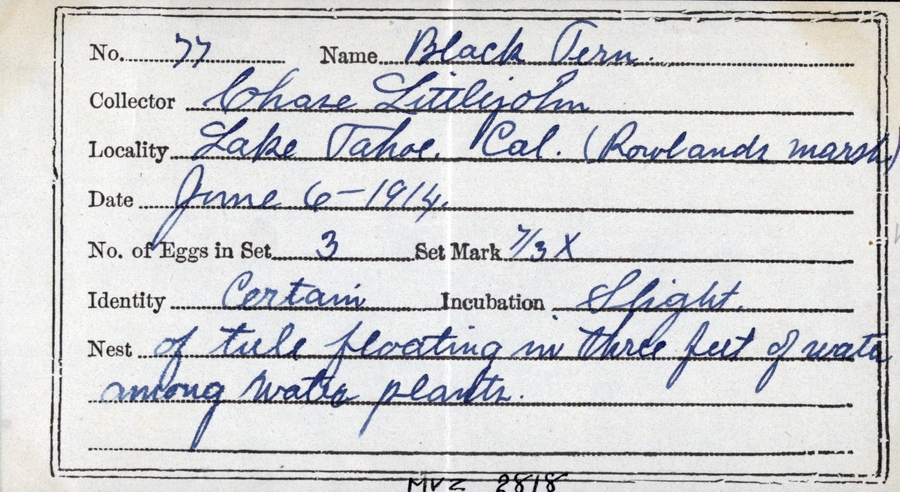 No. 77 Name Black Tern.
Collector Chase Littlejohn
Locality Lake Tahoe. Cal. (Rowlands marsh)
Date June 6-1914.
No. of Eggs in Set 3 Set Mark 7/3 X
Identity Certain Incubation Slight.
Nest of tule floating in three feet of water
among water plants.
MVZ 2818